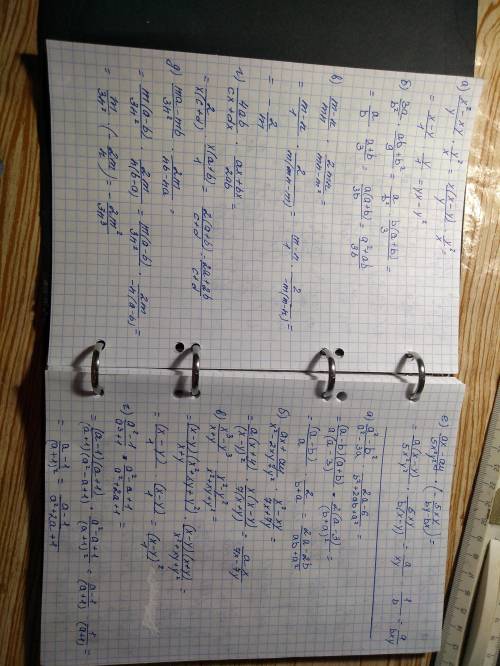 а) (x²-xy)/y · y²/x = x(x-y)/y · y²/x =
= (x-y)/1 · y/1 = yx-y²
б) 3a/b² · (ab+b²)/9 = a/b² · b(a+b)/3 =
= a/b · (a+b)/3 = a(a+b)/3b = (a²+ab)/3b
в) (m-n)/mn · 2mn/(mn-m²) =
= (m-n)/1 · 2/m(n-m) = (m-n)/1 · 2/-m(m-n) =
= -2/m
г) 4ab/(cx+dx) · (ax+bx)/2ab =
= 2/x(c+d) · x(a+b)/1 = 2(a+b)/(c+d) = (2a+2b)/(c+d)
д) (ma-mb)/3n² · 2m/(nb-na) =
= m(a-b)/3n² · 2m/n(b-a) = m(a-b)/3n² · 2m/-n(a-b) =
= m/3n² · (-2m/n) = -2m²/3n³
е) (ax-ay)/5x²y² · (-5xy/(by-bx)) =
= a(x-y)/5x²y² · 5xy/b(x-y) = a/xy · 1/b = a/bxy
а) (a²-b²)/(a²-3a) · (2a-6)/(b²+2ab+a²) =
= (a-b)(a+b)/a(a-3) · 2(a-3)/(b+a)² =
= (a-b)/a · 2/(b+a) = (2a-2b)/(ab+a²)
б) (ax+ay)/(x²-2xy+y²) · (x²-xy)/(7x+7y) =
= a(x+y)/(x-y)² · x(x-y)/7(x+y) = ax/(7x-7y)
в) (x³-y³)/(x+y) · (x²-y²)/(x²+xy+y²) =
= (x-y)(x²+xy+y²)/(x+y) · (x-y)(x+y)/(x²+xy+y²) =
= (x-y)/1 · (x-y)/1 = (x-y)²
г) (a²-1)/(a³+1) · (a²-a+1)/(a²+2a+1) =
= (a-1)(a+1)/(a+1)(a²-a+1) · (a²-a+1)/(a+1)² = (a-1)/(a+1) · 1/(a+1) =
= (a-1)/(a+1)² = (a-1)/(a²+2a+1)